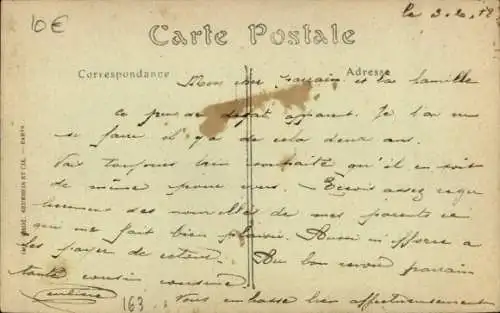 10€
le 3.2.18
Carte Postale
Correspondance
Adresse
Mon cher parrain et la famille
ce peu de apparent. Je l'ai vu
se faire il y a de cela deux ans.
Vais toujours bien souhaite qu'il en soit
de même pour vous. Reçois assez régu
lièrement des nouvelles de mes parents ce
qui me fait bien plaisir. Aussi m'efforce a
les payer de retour. Au bon revoir parrain
tante cousin cousine
Vous embrasse bien affectueusement
163
NEURDEIN ET CIE. — PARIS